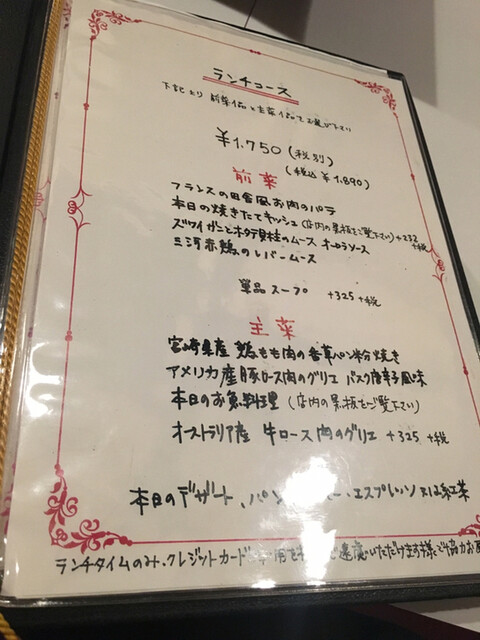 ランチコース
下記より 前菜1品と主菜1品お選び下さい
¥1,750(税別)
(税込¥1,890)
前菜
フランスの田舎風お肉のパテ
本日の焼きたてキッシュ(店内の黒板をご覧下さい)
ズワイガニとホタテ貝柱のムース オーロラソース +232 +税
三河赤鶏のレバームース
単品スープ +325 +税
主菜
宮崎県産 鶏もも肉の香草パン粉焼き
アメリカ産豚ロース肉のグリエ バスク唐辛子風味
本日のお魚料理 (店内の黒板をご覧下さい)
オーストラリア産 牛ロース肉のグリエ +325 +税
本日のデザート、パン ー、エスプレッソ又は紅茶
ランチタイムのみ、クレジットカード 用を 遠慮いただけます様ご協力お